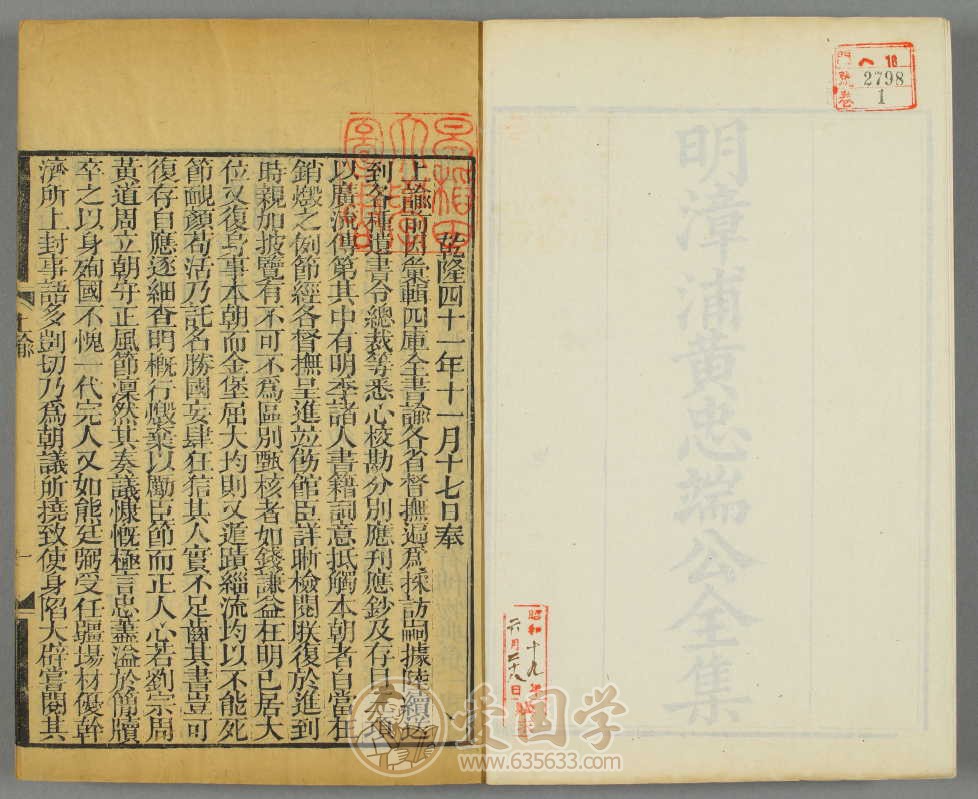 明漳浦黃忠端公全集
ヘ 16
2798
1
昭和十九年
六月二十八日
乾隆四十一年十一月十七日奉
上諭前因彙輯四庫全書諭各省督撫遍爲採訪嗣據陸續送
到各種遺書令總裁等悉心核勘分別應刊應鈔及存目三項
以廣流傳第其中有明季諸人書籍詞意抵觸本朝者自當在
銷燬之例節經各督撫呈進並飭館臣詳晰檢閱朕復於進到
時親加披覽有不可不爲區別甄核者如錢謙益在明已居大
位又復身事本朝而金堡屈大均則又遁蹟緇流均以不能死
節靦顏苟活乃託名勝國妄肆狂狺其人實不足齒其書豈可
復存自應逐細查明概行燬棄以勵臣節而正人心若劉宗周
黃道周立朝守正風節凜然其奏議慷慨極言忠藎溢於簡牘
卒之以身殉國不愧一代完人又如熊廷弼受任疆場材優幹
濟所上封事語多剴切乃爲朝議所撓致使身陷大辟嘗閱其
上諭
一
爱国学
www.635633.com